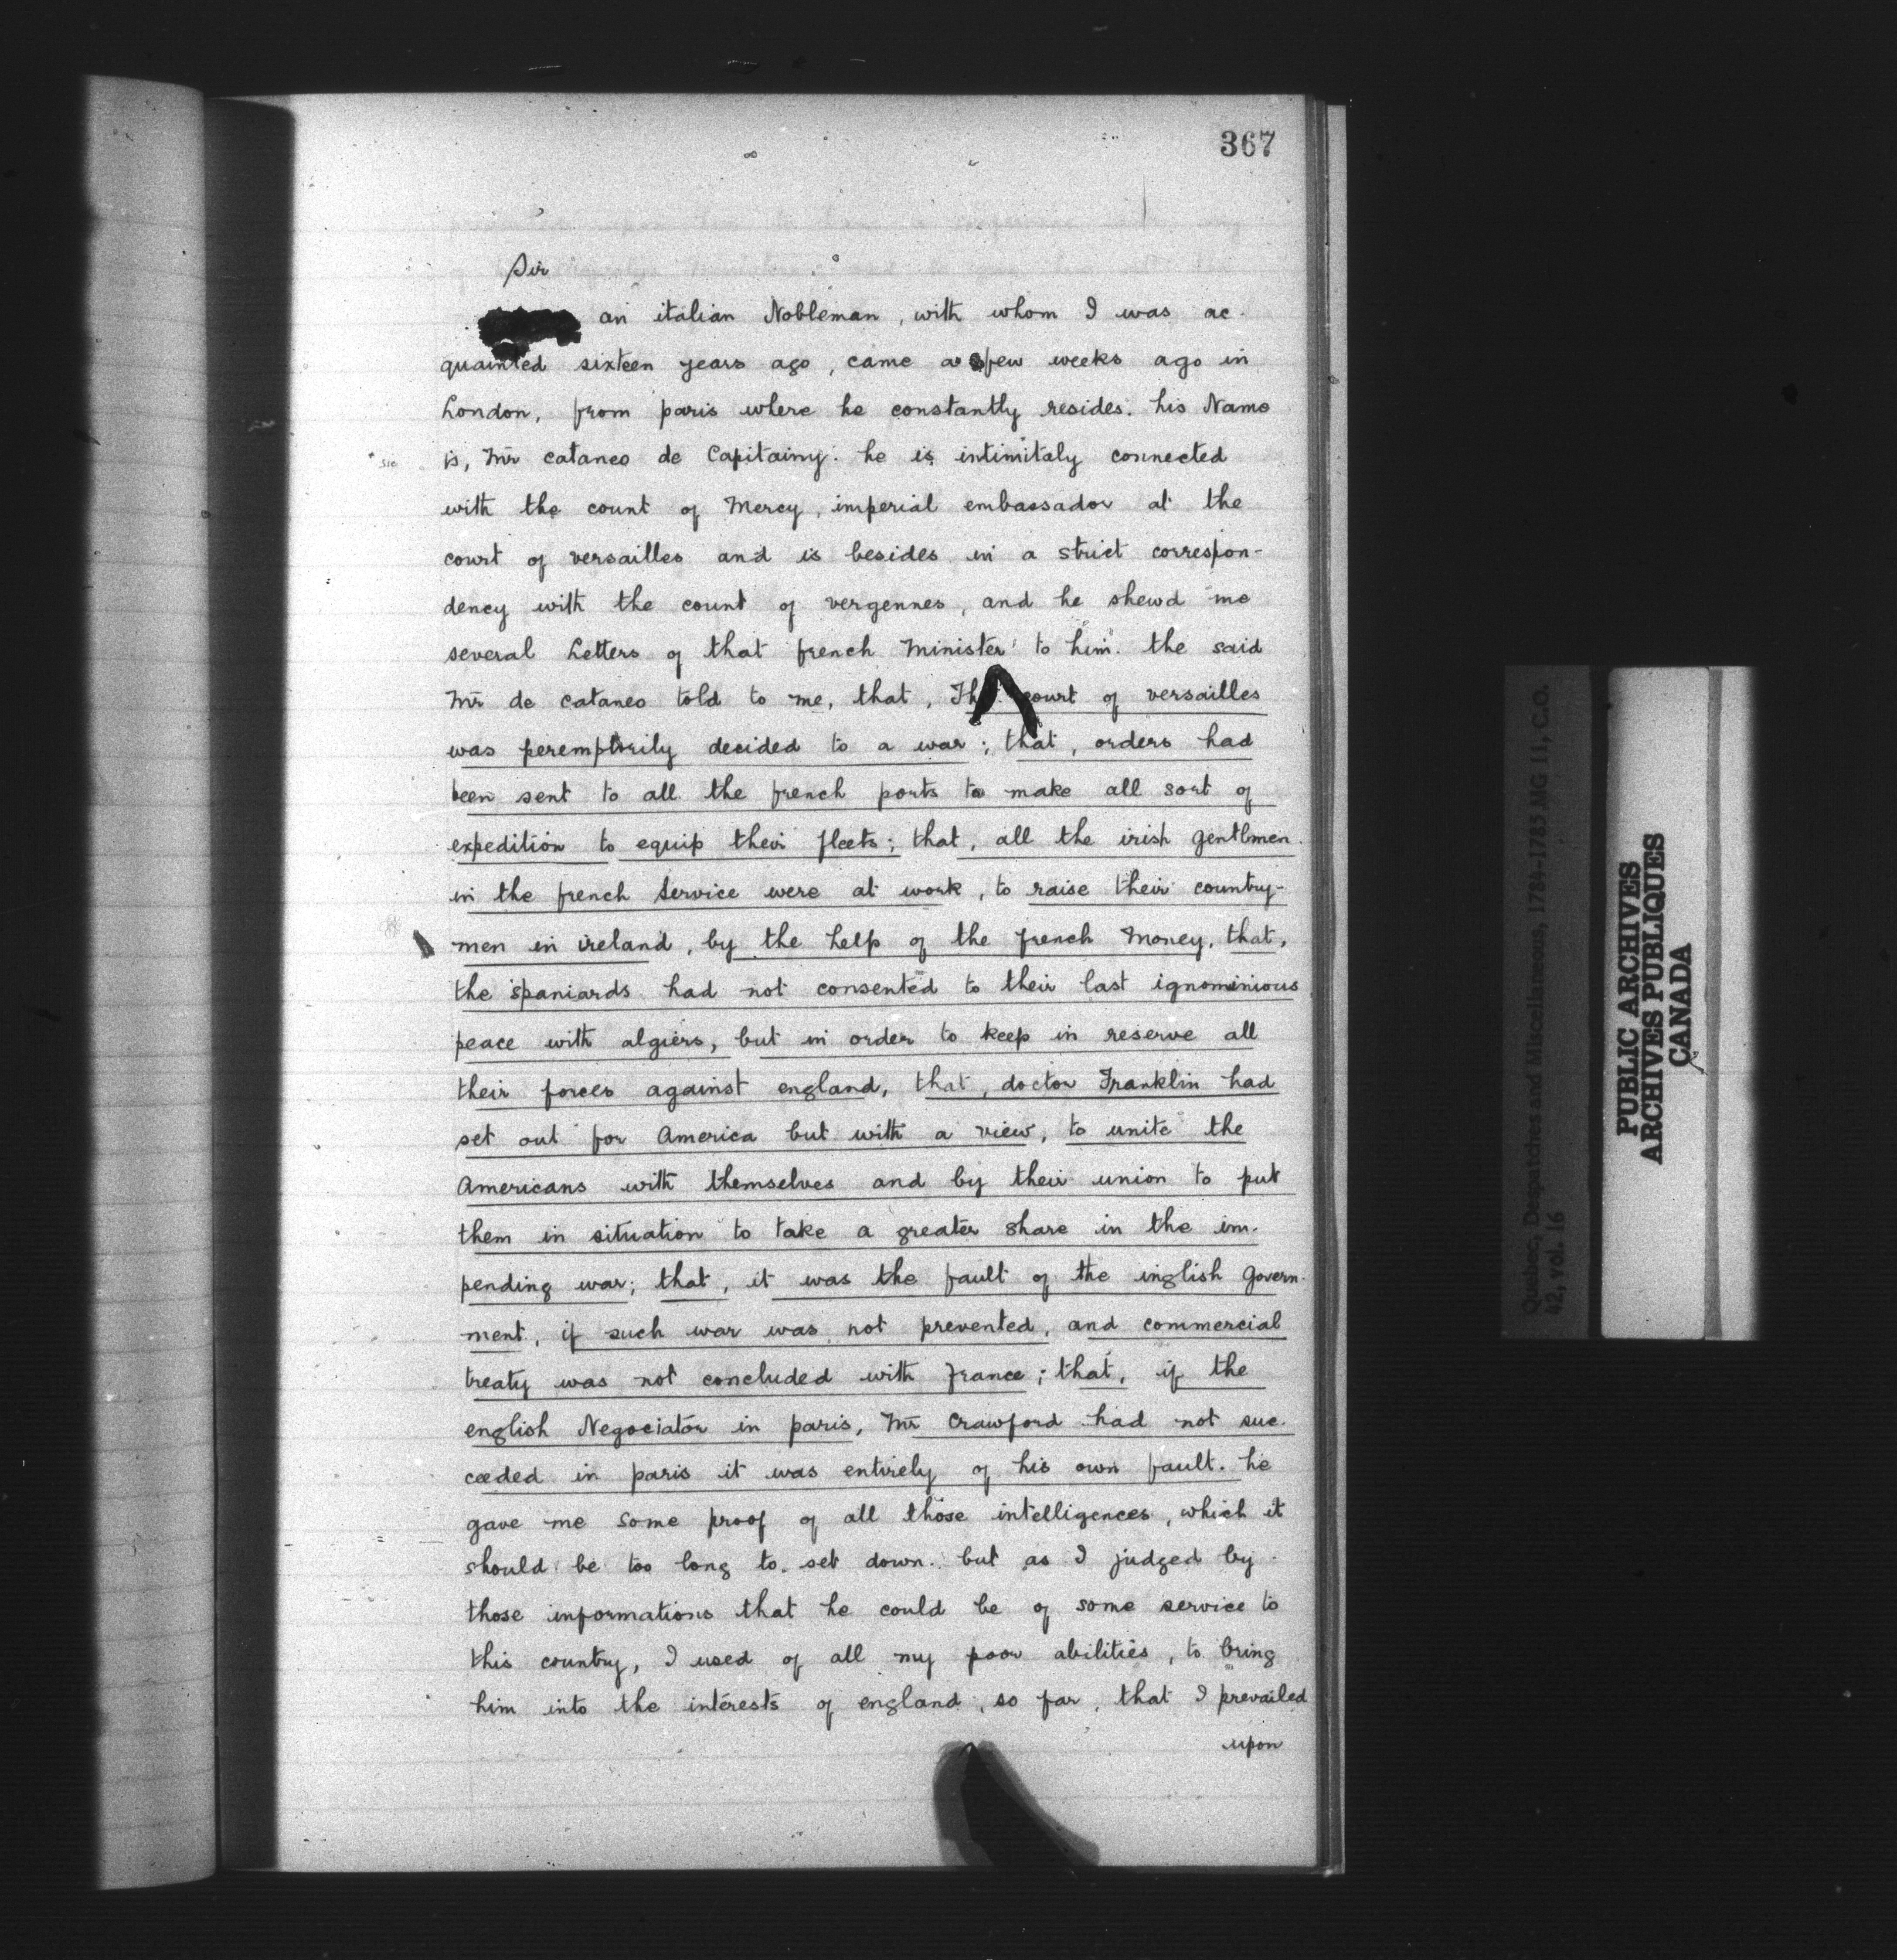 367
Sir
an italian Nobleman, with whom I was ac-
quainted sixteen years ago, came a few weeks ago in
London, from paris where he constantly resides. his Name
* sic is, Mr cataneo de Capitainy. he is intimitaly connected
with the count of Mercy, imperial embassador at the
court of versailles and is besides in a strict correspon-
dency with the count of vergennes, and he shewd me
several Letters of that french Minister to him. the said
Mr de cataneo told to me, that, The court of versailles
was peremptorily decided to a war; that, orders had
been sent to all the french ports to make all sort of
expedition to equip their fleets; that, all the irish gentlmen
in the french Service were at work, to raise their country-
men in ireland, by the help of the french Money, that,
the spaniards had not consented to their last ignominious
peace with algiers, but in order to keep in reserve all
their forces against england, that, doctor Franklin had
set out for America but with a view, to unite the
Americans with themselves and by their union to put
them in situation to take a greater share in the im-
pending war; that, it was the fault of the inglish Govern-
ment, if such war was not prevented, and commercial
treaty was not concluded with france; that, if the
english Negociator in paris, Mr Crawford had not suc-
ceeded in paris it was entirely of his own fault. he
gave me some proof of all those intelligences, which it
should be too long to set down. but as I judged by
those informations that he could be of some service to
this country, I used of all my poor abilities, to bring
him into the interests of england, so far, that I prevailed
upon
Quebec, Despatches and Miscellaneous, 1784-1785 MG 11, C.O.
42, vol. 16
PUBLIC ARCHIVES
ARCHIVES PUBLIQUES
CANADA